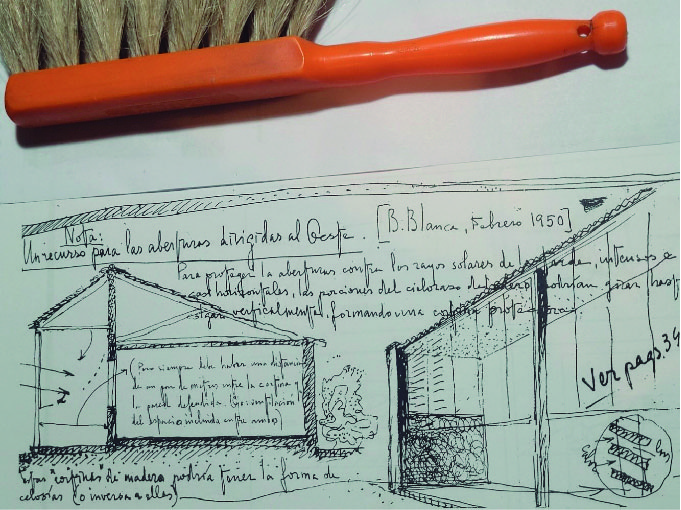 Nota:
Un recurso para las aberturas dirigidas al Oeste. [B. Blanca, Febrero 1950]
Para proteger la aberturas contra los rayos solares de la tarde, intensos e
casi horizontales, las porciones del cielorraso de madera podrían girar hasta
verticalmente, formando una cortina protectora.
(Pero siempre debe haber una distancia
de un par de metros entre la cortina y
la pared defendida.
del espacio incluido entre ambos)
Ver pags. 34
estas "cortinas" de madera podría tener la forma de
celosías (o inversa a ellas)